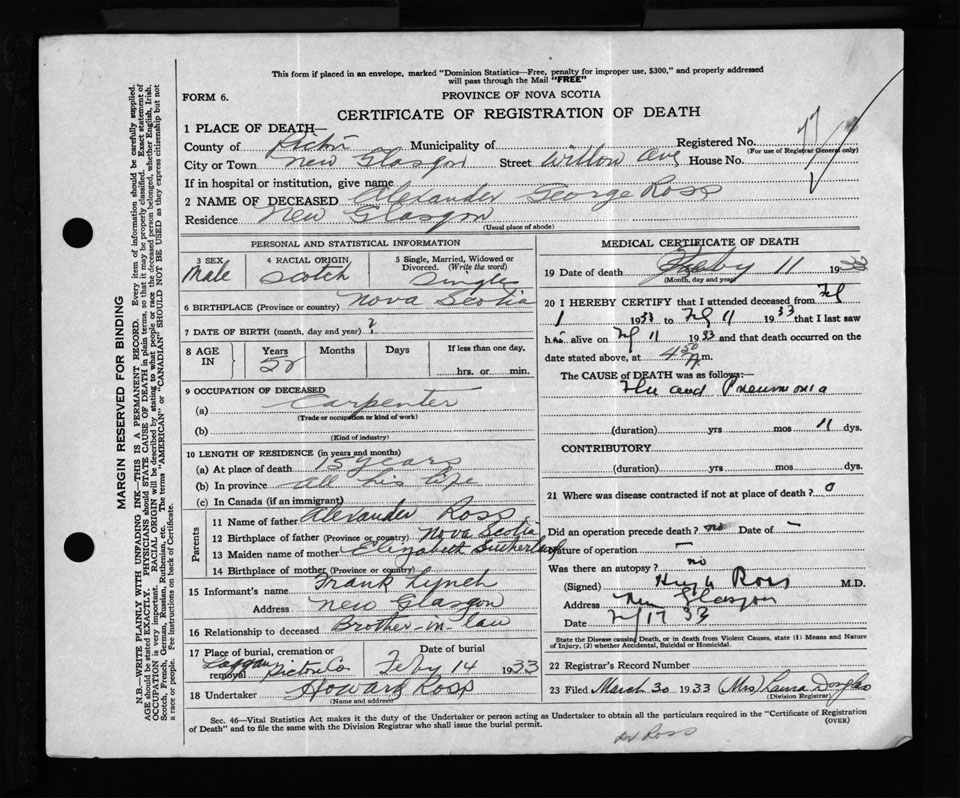 This form if placed in an envelope, marked "Dominion Statistics—Free, penalty for improper use, $300," and properly addressed
will pass through the Mail "FREE"
FORM 6.
PROVINCE OF NOVA SCOTIA
CERTIFICATE OF REGISTRATION OF DEATH
1 PLACE OF DEATH—
County of Pictou Municipality of Registered No. 77
(For use of Registrar General only)
City or Town New Glasgow Street Willow Ave House No.
If in hospital or institution, give name
2 NAME OF DECEASED Alexander George Ross
Residence New Glasgow
(Usual place of abode)
PERSONAL AND STATISTICAL INFORMATION
3 SEX 4 RACIAL ORIGIN 5 Single, Married, Widowed or
Divorced. (Write the word)
Male Scotch Single
6 BIRTHPLACE (Province or country) Nova Scotia
7 DATE OF BIRTH (month, day and year) ?
8 AGE IN Years Months Days If less than one day,
hrs. or min.
9 OCCUPATION OF DECEASED
(a) Carpenter
(Trade or occupation or kind of work)
(b)
(Kind of industry)
10 LENGTH OF RESIDENCE (in years and months)
(a) At place of death 15 years
(b) In province all his life
(c) In Canada (if an immigrant)
Parents
11 Name of father Alexander Ross
12 Birthplace of father (Province or country) Nova Scotia
13 Maiden name of mother Elizabeth Sutherland
14 Birthplace of mother (Province or country)
15 Informant's name Frank Lynch
Address New Glasgow
16 Relationship to deceased Brother-in-law
17 Place of burial, cremation or removal Date of burial
Loggan Pictou Co Feby 14 1933
18 Undertaker Howard Ross
(Name and address)
MEDICAL CERTIFICATE OF DEATH
19 Date of death Feby 11 1933
(Month, day and year)
20 I HEREBY CERTIFY that I attended deceased from Feb
1 1933 to Feb 11 1933 that I last saw
him alive on Feb 11 1933 and that death occurred on the
date stated above, at 4 50 A.m.
The CAUSE OF DEATH was as follows:—
Flu and Pneumonia
(duration) yrs mos 11 dys.
CONTRIBUTORY
(duration) yrs. mos. dys.
21 Where was disease contracted if not at place of death? 0
Did an operation precede death? no Date of –
Nature of operation –
Was there an autopsy? no
(Signed) Hugh Ross M.D.
Address New Glasgow
Date 2/17 33
State the Disease causing Death, or in death from Violent Causes, state (1) Means and Nature
of Injury, (2) whether Accidental, Suicidal or Homicidal.
22 Registrar's Record Number
23 Filed March 30 1933 (Mrs) Laura Douglas
(Division Registrar)
Sec. 46—Vital Statistics Act makes it the duty of the Undertaker or person acting as Undertaker to obtain all the particulars required in the "Certificate of Registration
of Death" and to file the same with the Division Registrar who shall issue the burial permit.
(OVER)
Dr Ross
MARGIN RESERVED FOR BINDING
N.B.—WRITE PLAINLY WITH UNFADING INK—THIS IS A PERMANENT RECORD. Every item of information should be carefully supplied.
AGE should be stated EXACTLY. PHYSICIANS should STATE CAUSE OF DEATH in plain terms, so that it may be properly classified. Exact statement of
OCCUPATION is very important. RACIAL ORIGIN will be described by stating to what people or race the deceased person belonged, whether English, Irish,
Scotch, French, German, Russian, Ruthenian, etc. The terms "AMERICAN" or "CANADIAN" SHOULD NOT BE USED as they express citizenship but not
a race or people. Fee instructions on back of Certificate.